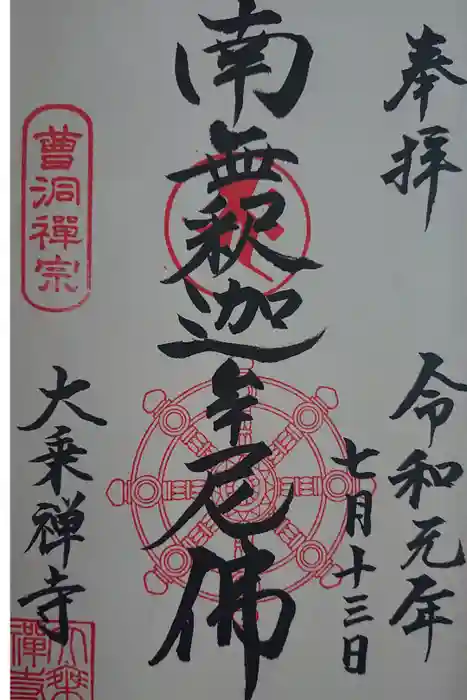 奉拝
令和元年
七月十三日
南無釈迦牟尼佛
曹洞禪宗
大乗禅寺